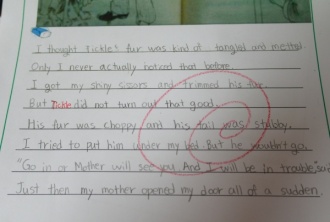 I thought Tickle's fur was kind of tangled and metted.
Only I never actually noticed that before.
I got my shiny sissors and trimmed his fur.
But Tickle did not turn out that good.
His fur was choppy and his tail was stubby.
I tried to put him under my bed But he wouldn't go.
"Go in or Mother will see you And I will be in trouble," sai
Just then my mother opened my door all of a sudden.